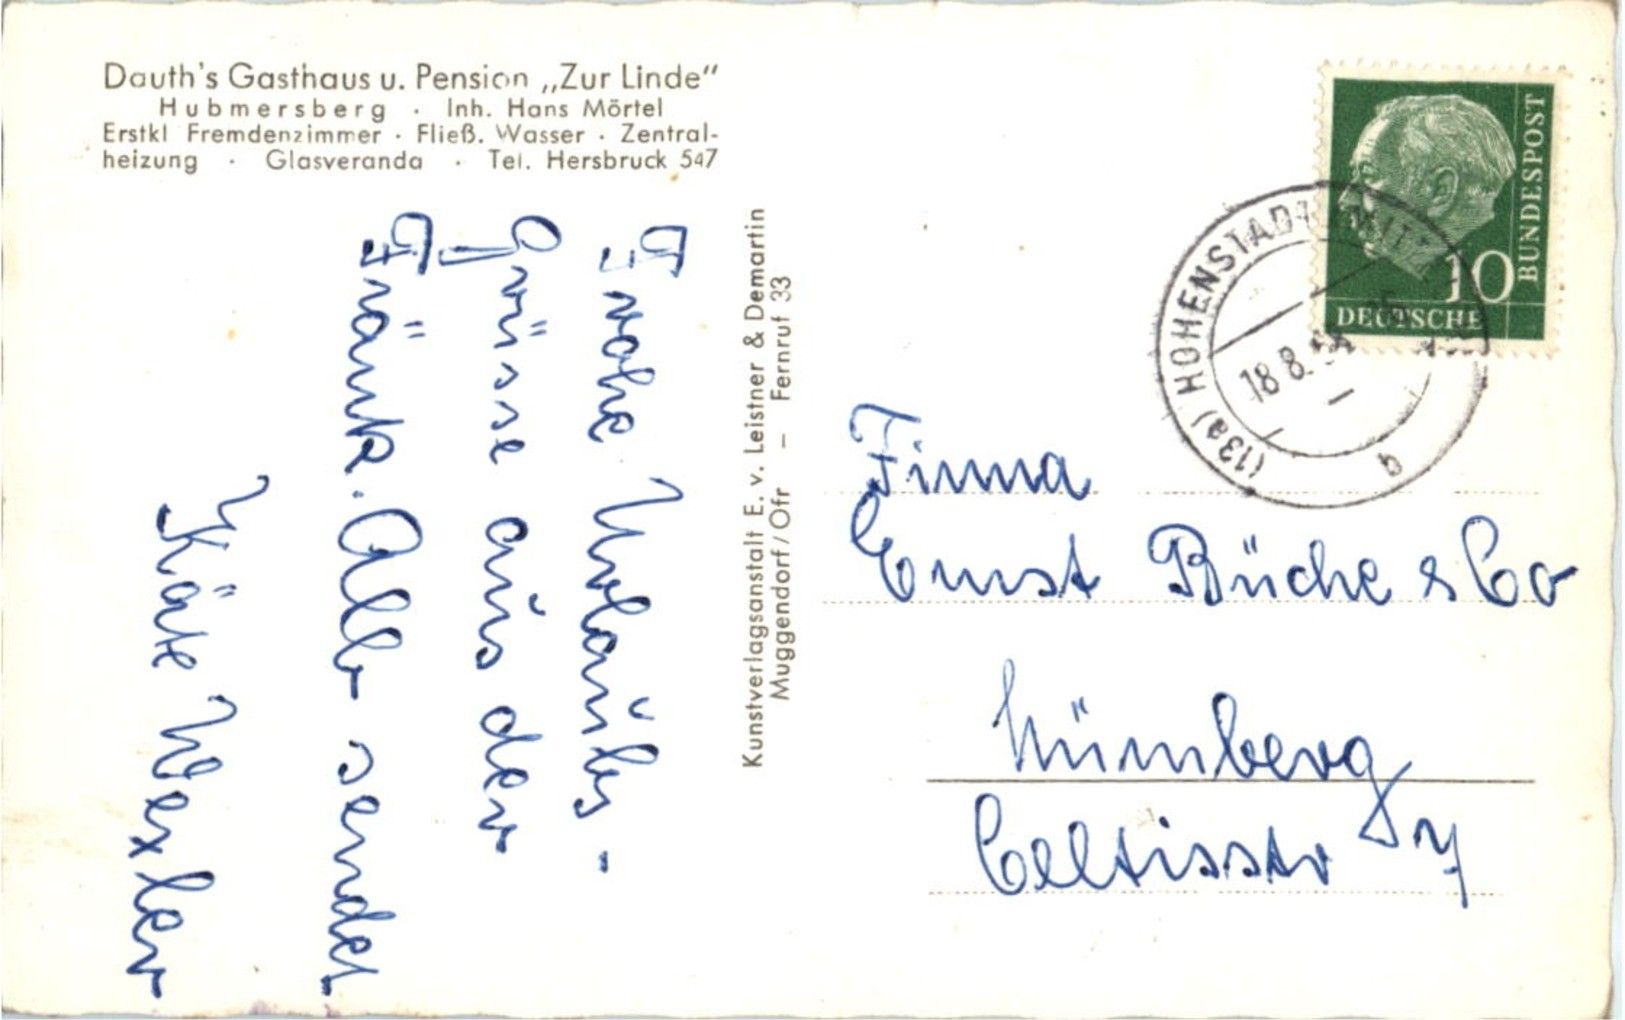 Dauth's Gasthaus u. Pension „Zur Linde"
Hubmersberg · Inh. Hans Mörtel
Erstkl Fremdenzimmer · Fließ. Wasser · Zentral-
heizung · Glasveranda · Tel. Hersbruck 547
Frohe Urlaubs-
Grüsse aus der
Fränk. Alb sendet
Käte Wexler
Kunstverlagsanstalt E. v. Leistner & Demartin
Muggendorf/Ofr – Fernruf 33
BUNDESPOST
10
DEUTSCHE
(13a) HOHENSTADT
18 8.
b
Firma
Ernst Büche & Co
Nürnberg
Celtisstr 7